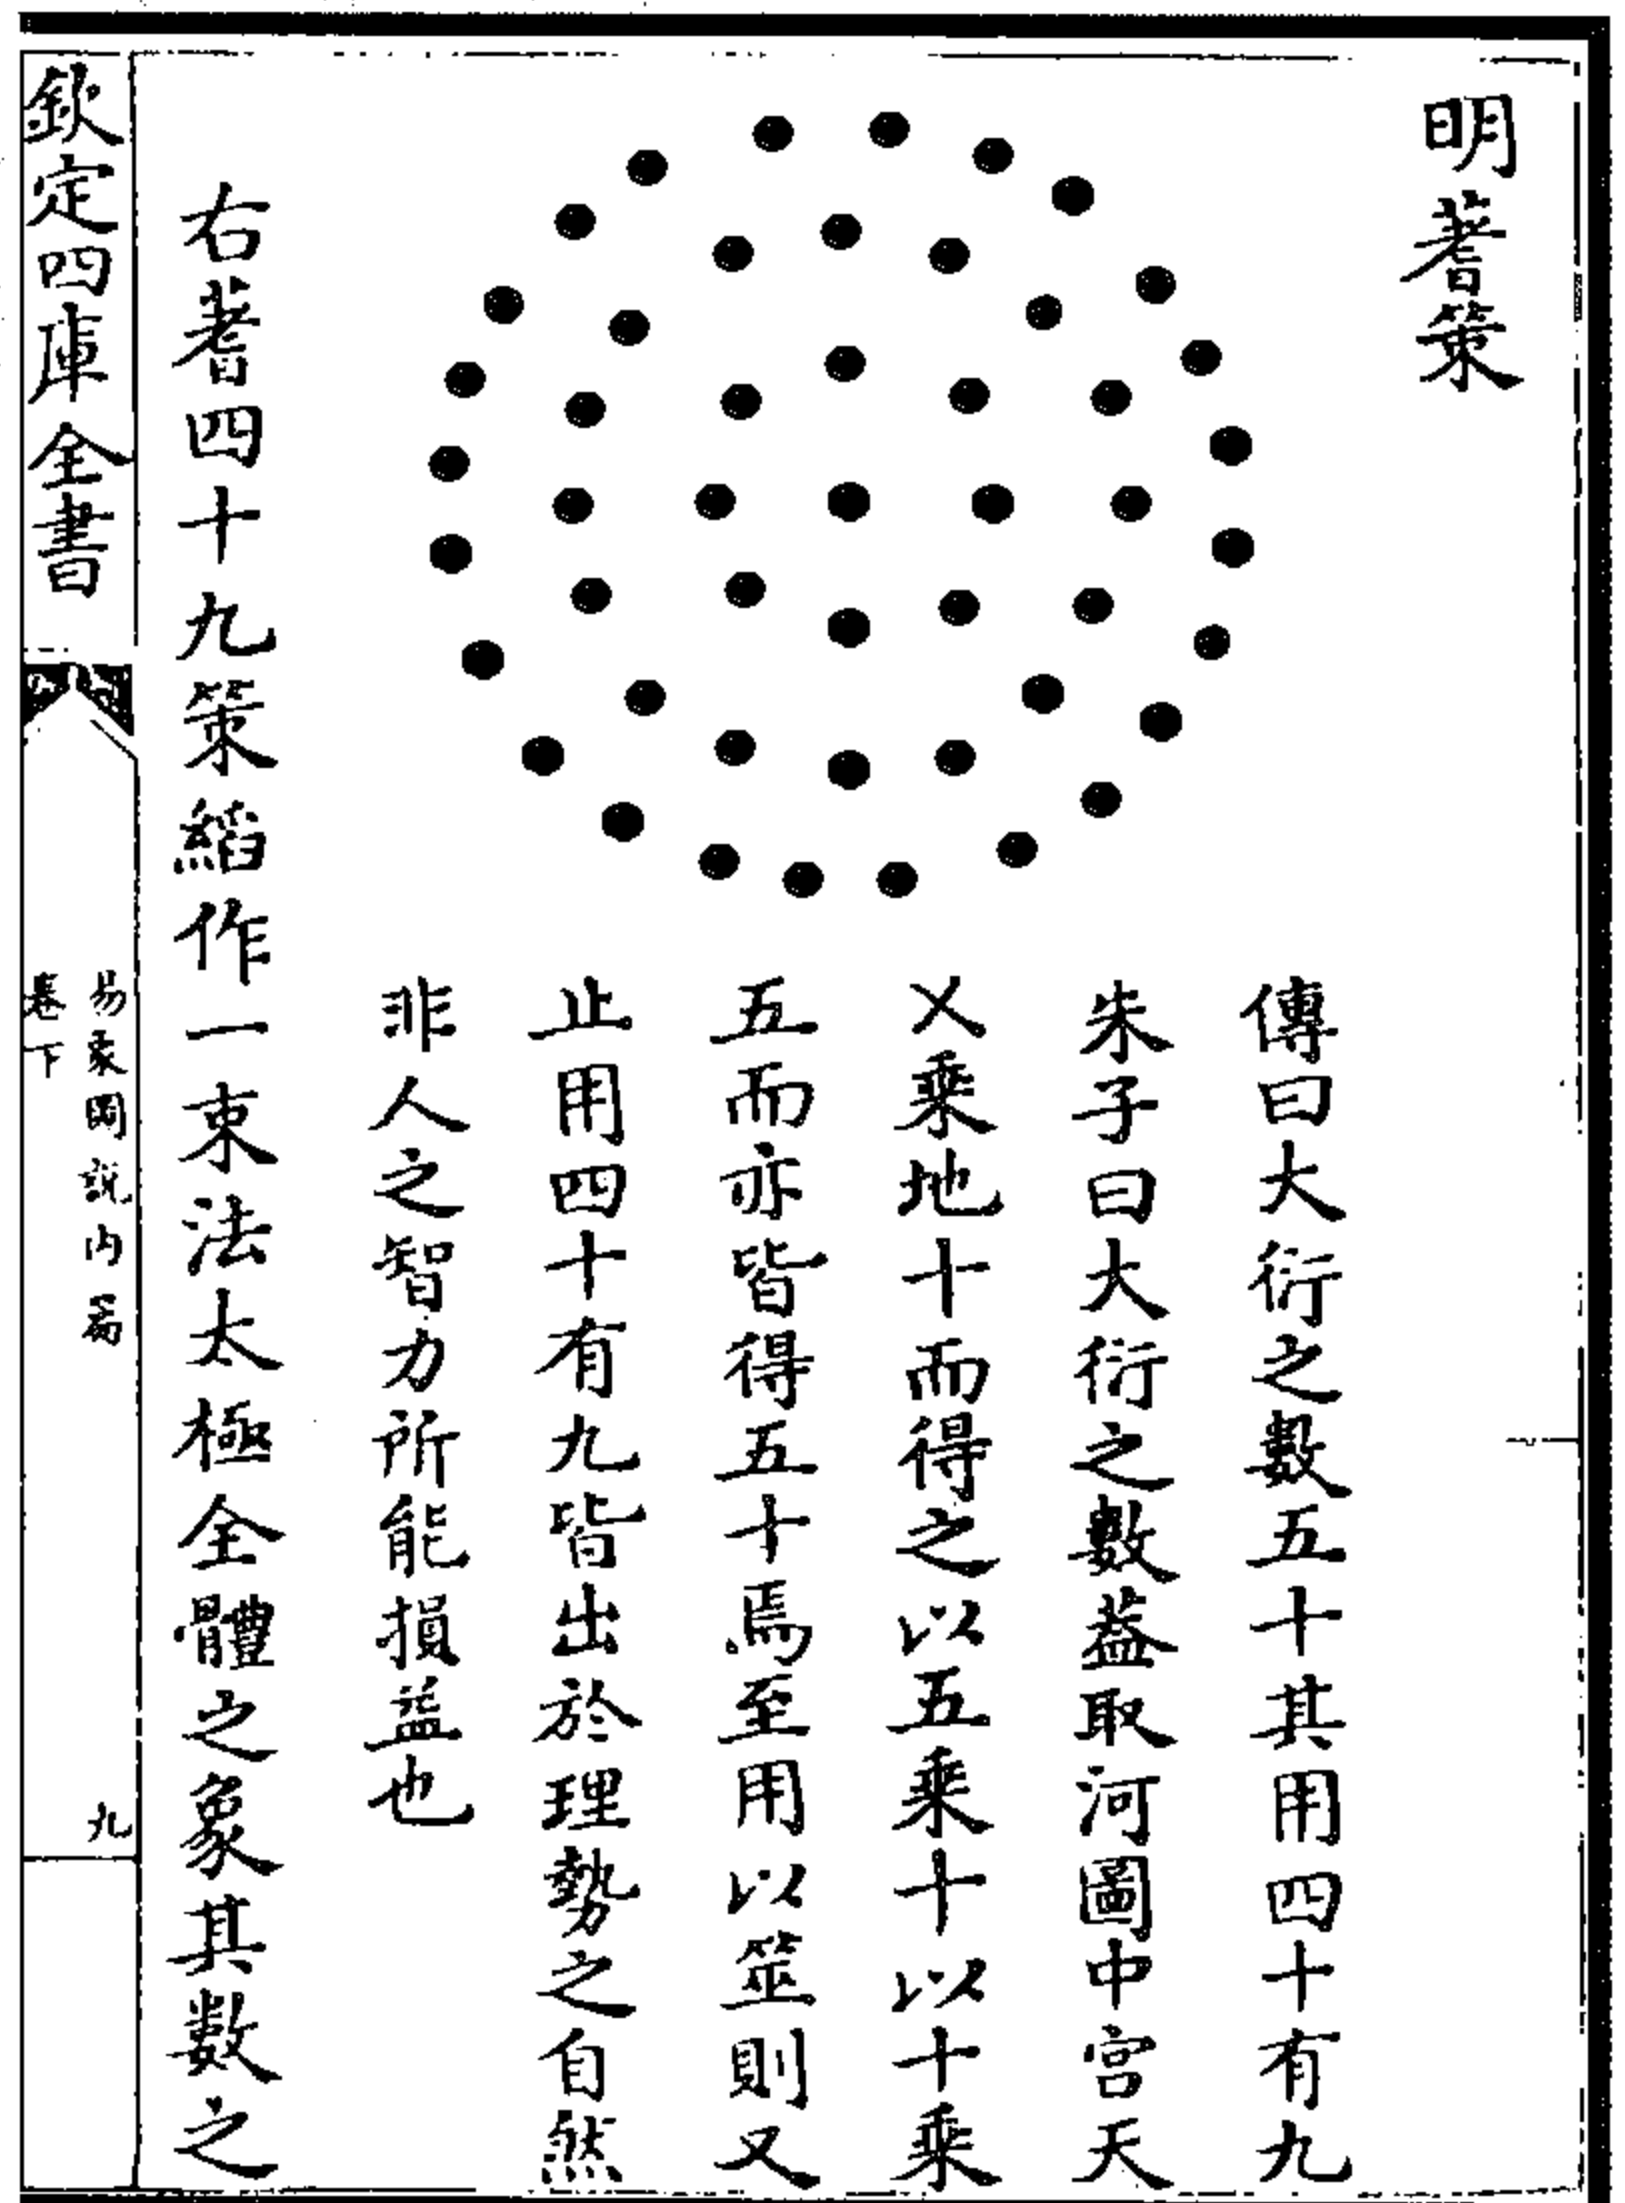 明蓍策
傳曰大衍之數五十其用四十有九
朱子曰大衍之數葢取河圖中宫天
㐅乘地十而得之以五乘十以十乘
五而亦皆得五十焉至用以筮則又
止用四十有九皆出於理勢之自然
非人之智力所能損益也
右蓍四十九策縚作一束法太極全體之象其數之
欽定四庫全書
易象圖説内篇
卷下
九